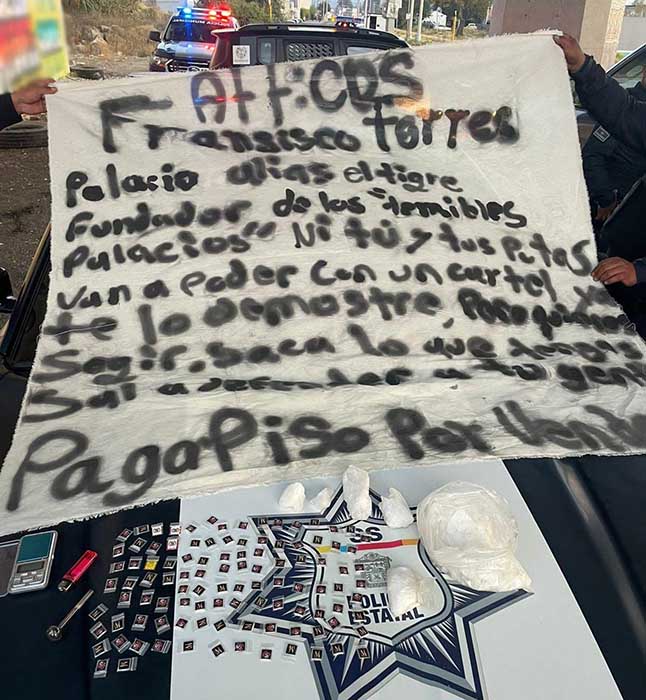 Att: CDS
Fransisco torres
Palacio alias el tigre
Fundador de los "temibles
Palacios" Ni tú y tus Putas
van a Poder Con un cartel
te lo demostre, Pero quieres
Segir. saca lo que tengas
Sal a defender a tu gente
Paga Piso Por Venta
SS
POLICÍA
ESTATAL